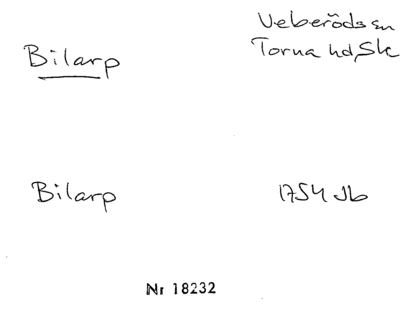 Veberöds sn
Bilarp
Torna hd, Sk
Bilarp
1754 Jb
Nr 18232